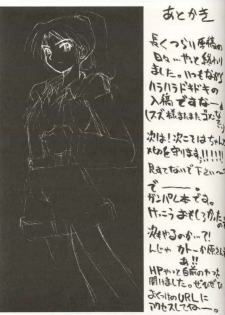 あとがき
長くつらい原稿の
日々…やっと終わり
ました。いつもながら
ハラハラドキドキの
入稿ですなー
次は!次こそはちゃんと
〆切を守ります!!!!!
見すてないで下さい〜
でーーー。
ガンパレ本です。
けっこうおもしろかった
次もやるのかって?
あ!!
HPやっと自前のやつ
開けました。ぜひぜひ
おくづけのURLに
アクセスしてねー。